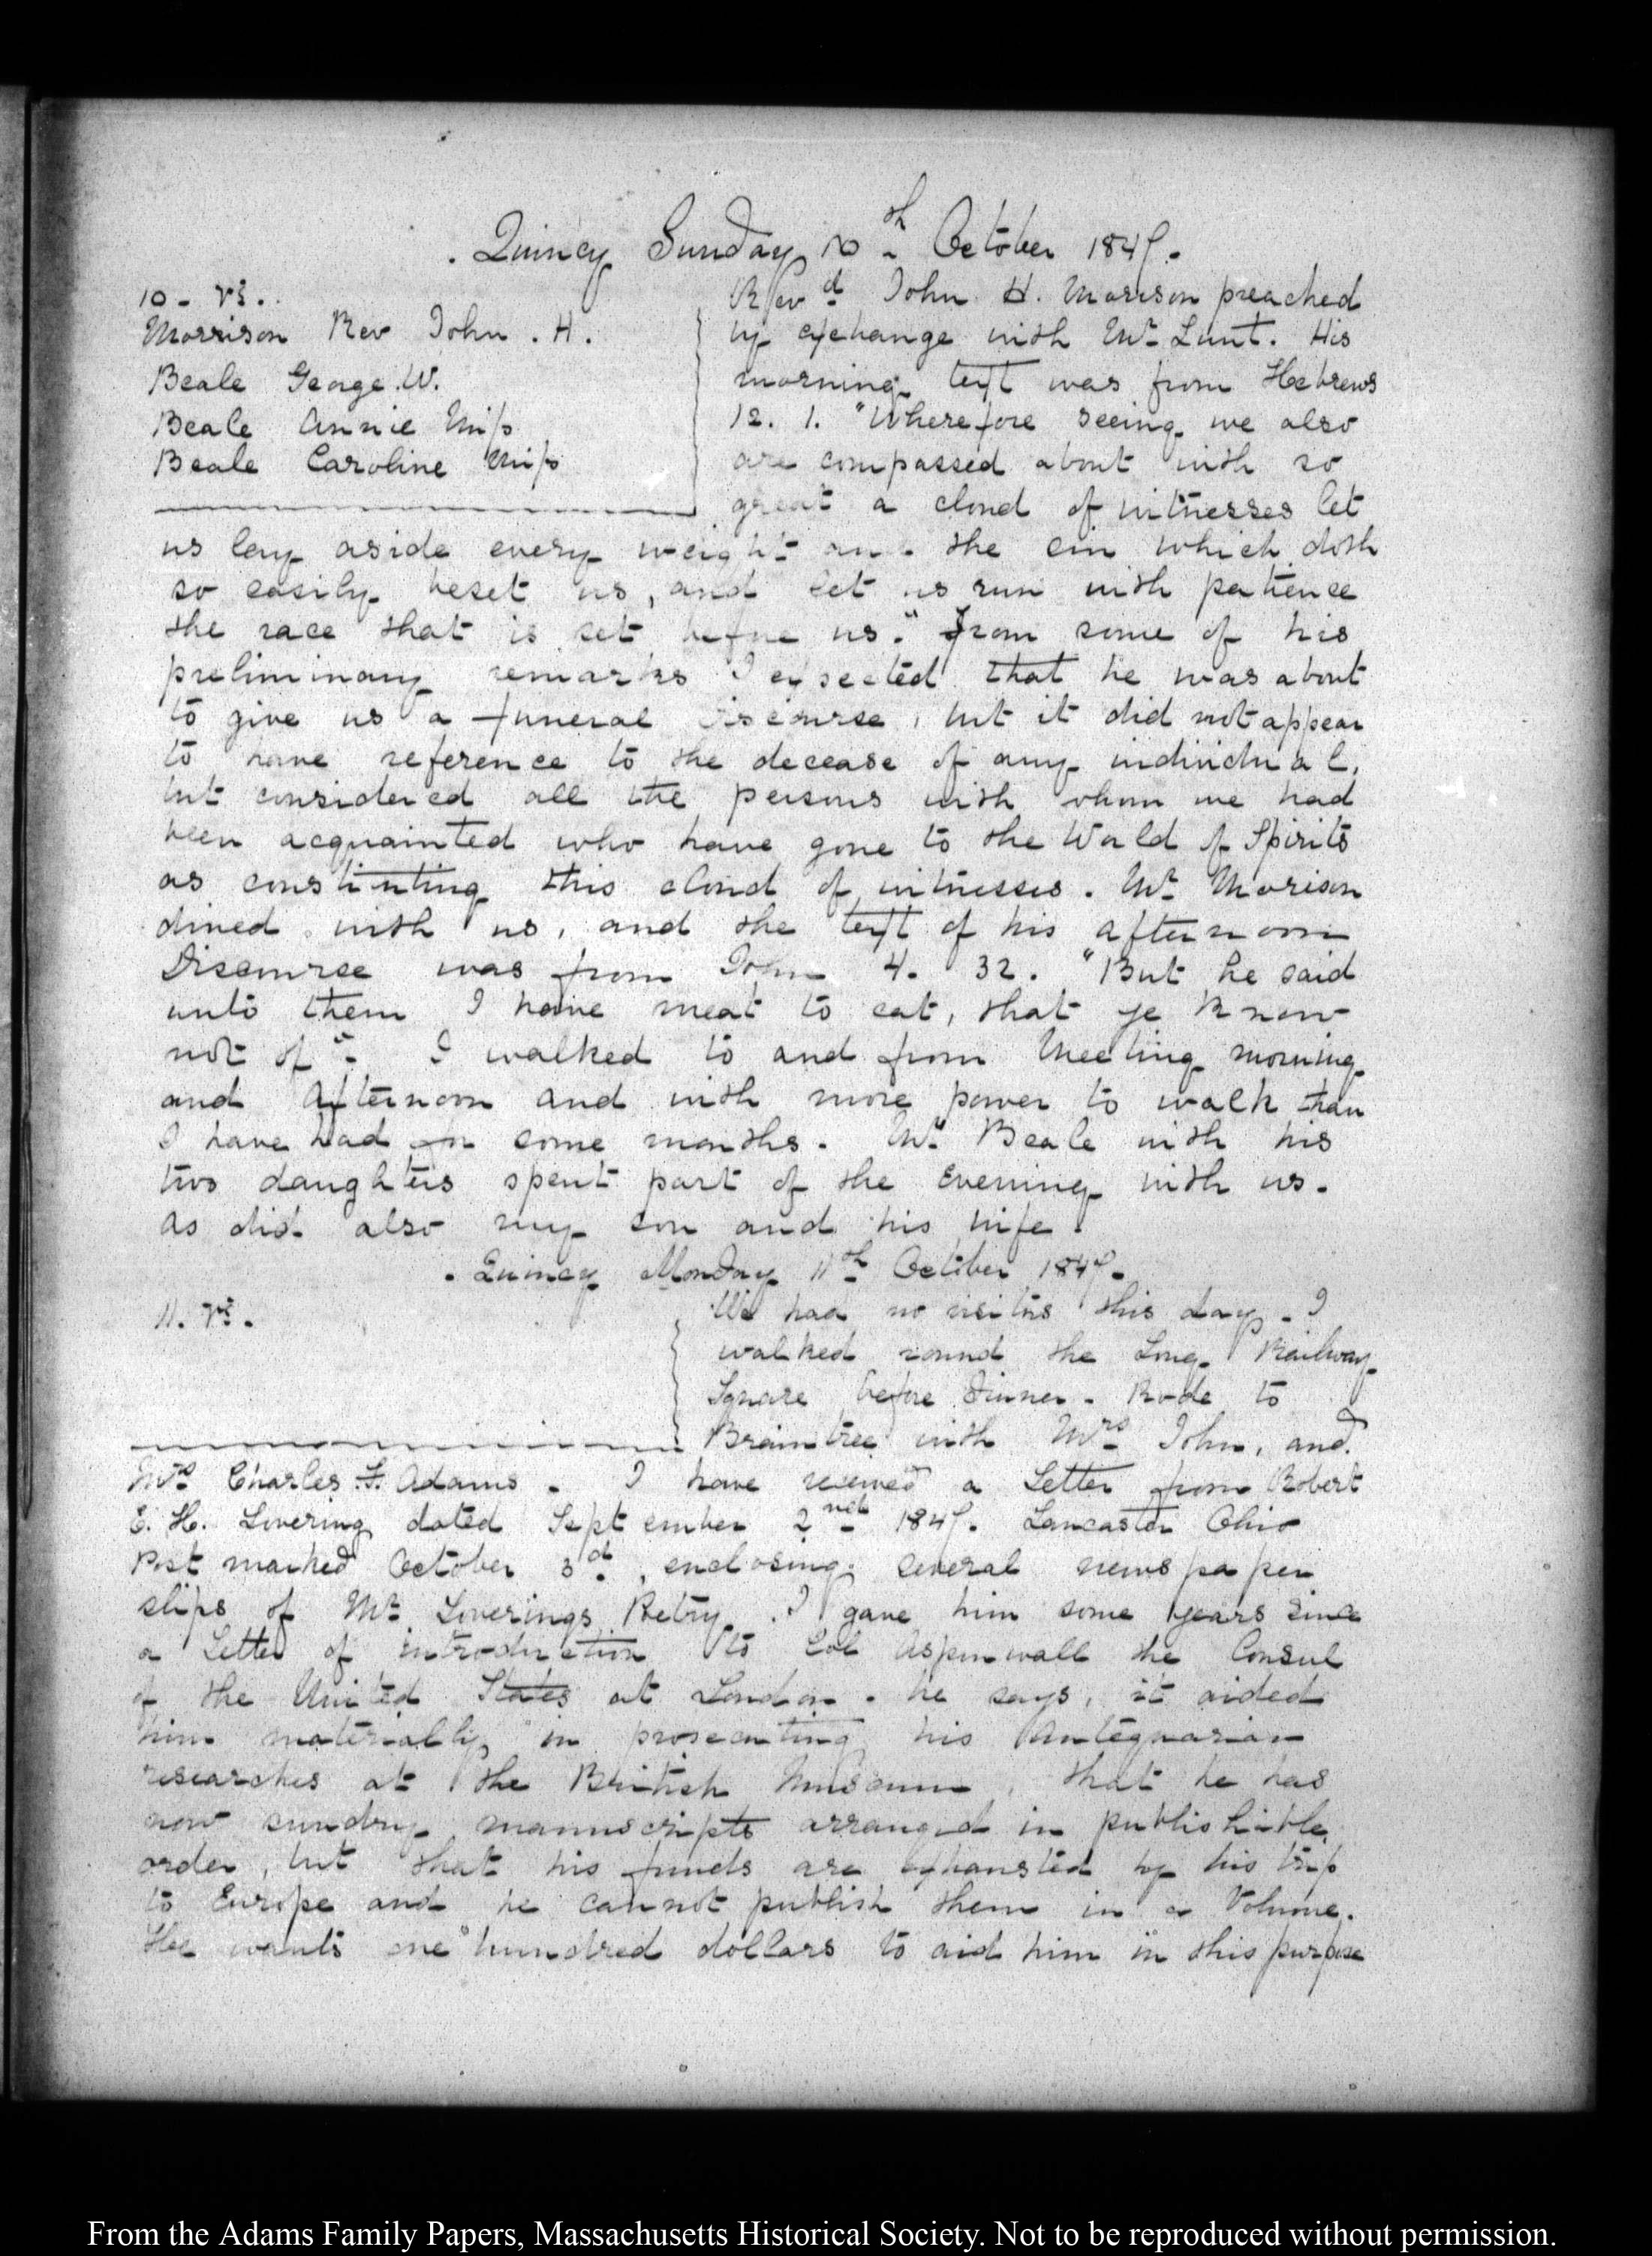 . Quincy Sunday 10th October 1847.
10. VI.
Morrison Rev John. H.
Beale George. W.
Beale Annie Miss
Beale Caroline Miss
Revd John H. Morison preached
by exchange with Mr Lunt. His
morning text was from Hebrews
12. 1. "Wherefore seeing we also
are compassed about with so
great a cloud of witnesses let
us lay aside every weight and the sin which doth
so easily beset us, and let us run with patience
the race that is set before us." From some of his
preliminary remarks I expected that he was about
to give us a funeral discourse, but it did not appear
to have reference to the decease of any individual,
but considered all the persons with whom we had
been acquainted who have gone to the World of Spirits
as constituting this cloud of witnesses. Mr Morison
dined with us, and the text of his afternoon
Discourse was from John 4. 32. "But he said
unto them I have meat to eat, that ye know
not of". I walked to and from Meeting morning
and Afternoon and with more power to walk than
I have had in some months. Mr Beale with his
two daughters spent part of the Evening with us.
As did also my son and his wife.
. Quincy Monday 11th October 1847.
11. VI.
We had no visitors this day. I
walked round the Long Railway
Square before Dinner. Rode to
Braintree with Mrs John, and
Mrs Charles F. Adams. I have received a Letter from Robert
E. H. Levering dated September 2nd 1847. Lancaster Ohio
Post marked October 3d, enclosing several newspaper
slips of Mr Leverings Poetry. I gave him some years since
a Letter of introduction to Col Aspinwall the Consul
of the United States at London. he says, it aided
him materially in prosecuting his Antequarian
researches at the British Museum, that he has
now sundry manuscripts arranged in publishible
order, but that his funds are exhausted by his trip
to Europe and he cannot publish them in a Volume.
He wants one hundred dollars to aid him in this purpose
From the Adams Family Papers, Massachusetts Historical Society. Not to be reproduced without permission.